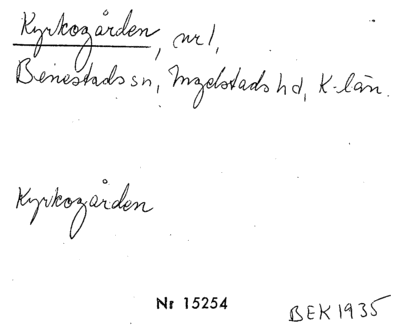 Kyrkogården, nr 1,
Benestads sn, Ingelstads hd, K-län.
Kyrkogården
Nr 15254
BEK 1935